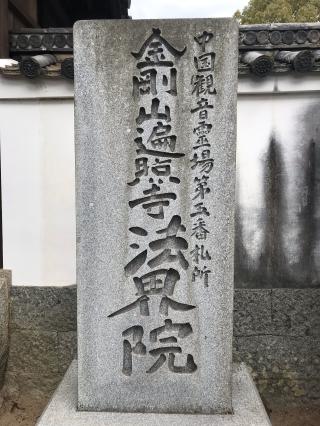 中国観音霊場第五番札所
金剛山遍照寺法界院